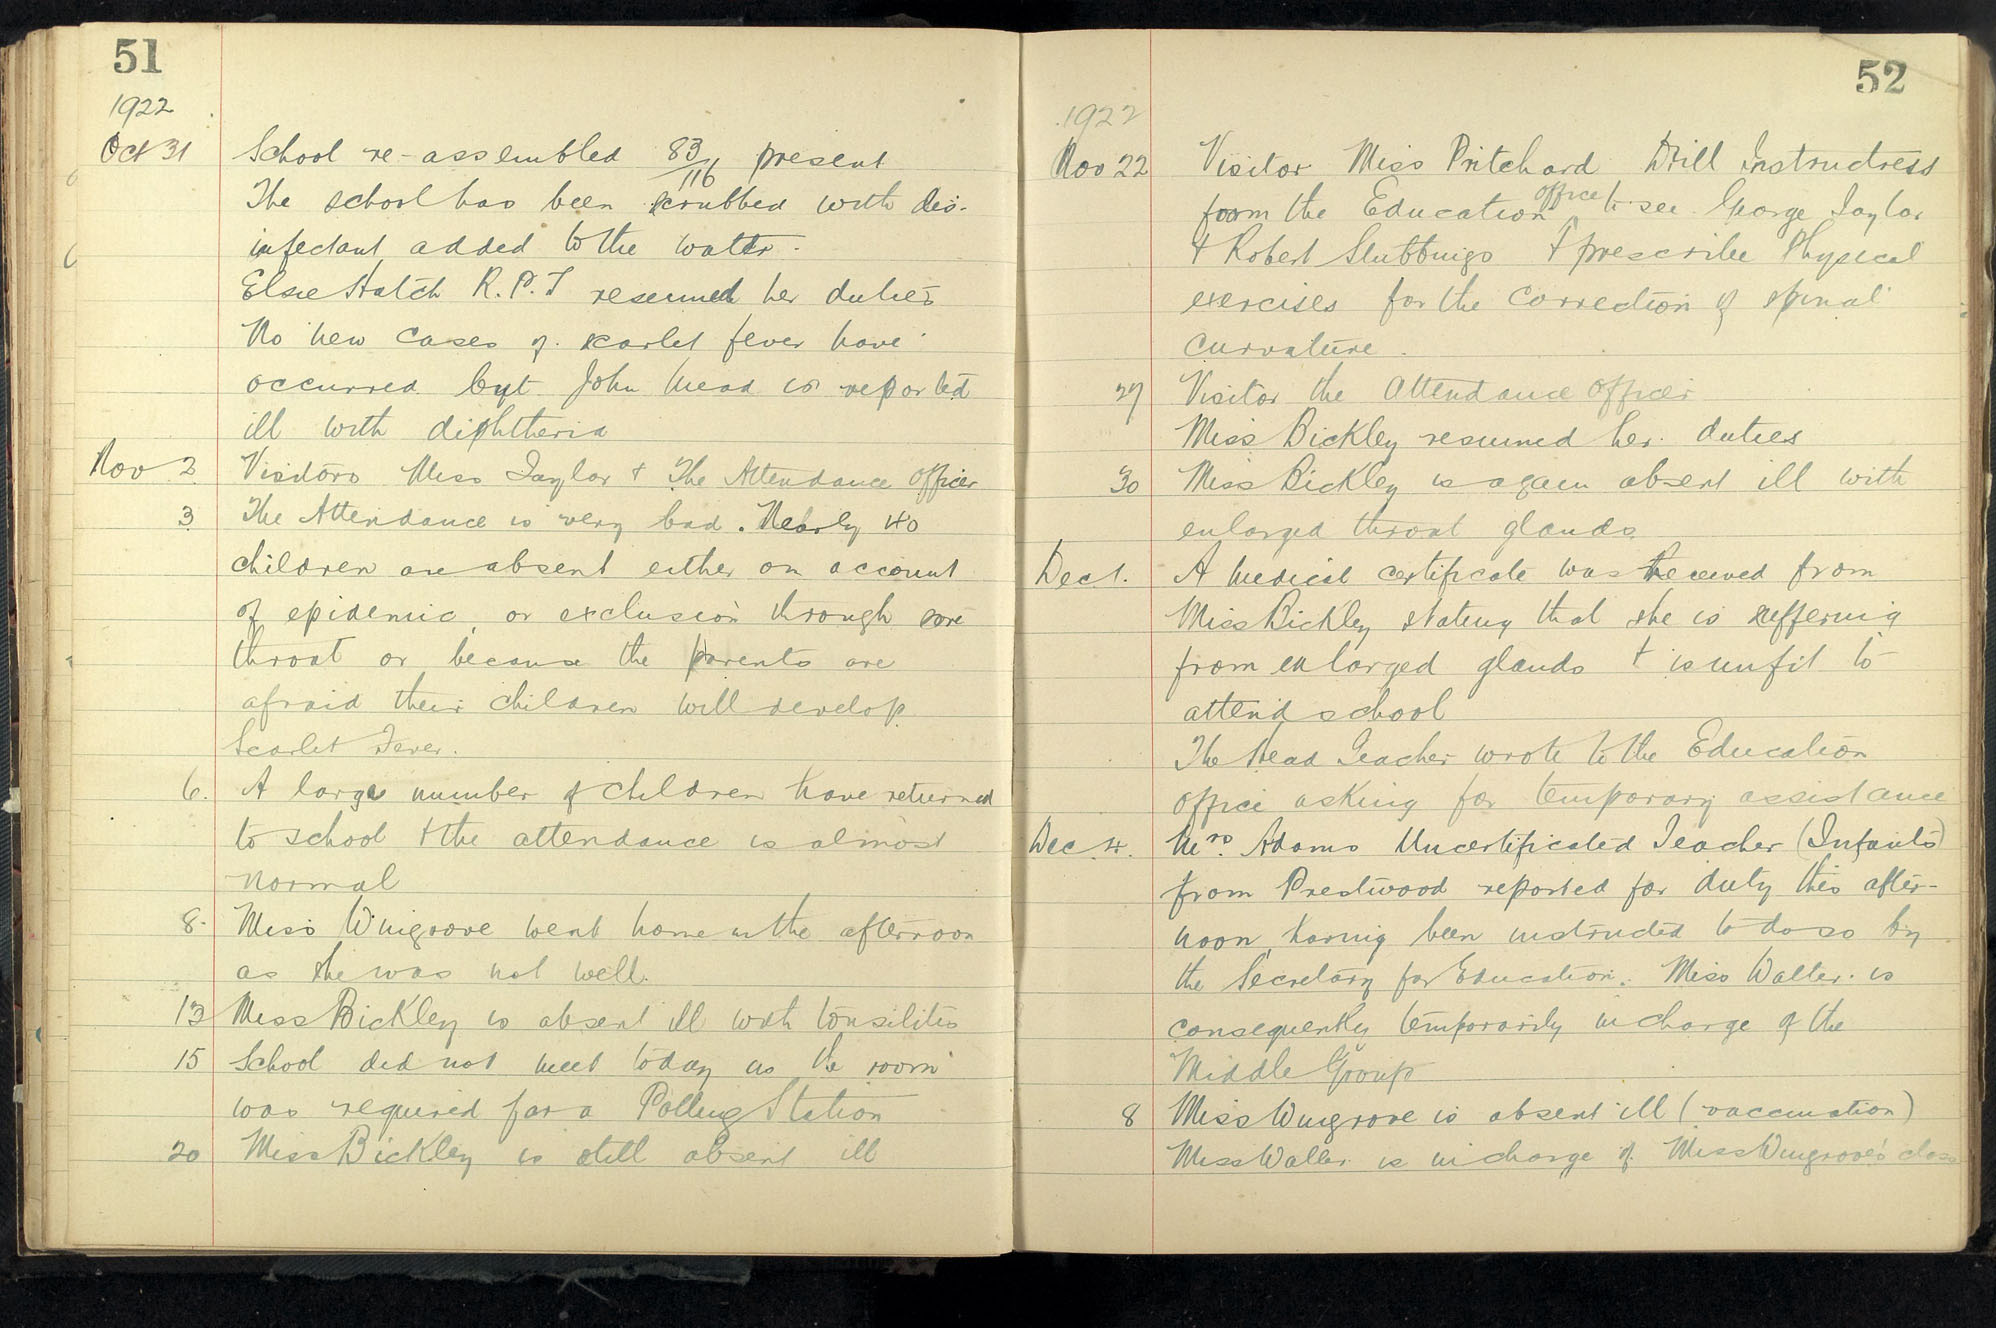 51
1922
Oct 31 School re-assembled 83/116 present
The school has been scrubbed with dis-
infectant added to the water.
Elsie Hatch R.P.T resumed her duties
No new cases of scarlet fever have
occurred but John Mead is reported
ill with diphtheria
Nov 2 Visitors Miss Taylor & The Attendance Officer
3 The Attendance is very bad. Nearly 40
children are absent either on account
of epidemic, or exclusion through sore
throat or because the parents are
afraid their children will develop
Scarlet Fever.
6. A large number of children have returned
to school & the attendance is almost
normal
8. Miss Wingrove went home in the afternoon
as she was not well.
13 Miss Bickley is absent ill with tonsilitis
15 School did not meet today as the room
was required for a Polling Station
20 Miss Bickley is still absent ill
52
1922
Nov 22 Visitor Miss Pritchard Drill Instructress
from the Education office to see George Taylor
& Robert Stubbings & prescribe Physical
exercises for the correction of spinal
curvature.
27 Visitor the Attendance Officer
Miss Bickley resumed her duties
30 Miss Bickley is again absent ill with
enlarged throat glands.
Dec 1. A medical certificate was received from
Miss Bickley stating that she is suffering
from enlarged glands & is unfit to
attend school
The Head Teacher wrote to the Education
office asking for temporary assistance
Dec 4. Mrs. Adams Uncertificated Teacher (Infants)
from Prestwood reported for duty this after-
noon, having been instructed to do so by
the Secretary for Education. Miss Waller is
consequently temporarily in charge of the
Middle Group
8 Miss Wingrove is absent ill (vaccination)
Miss Waller is in charge of Miss Wingrove's class